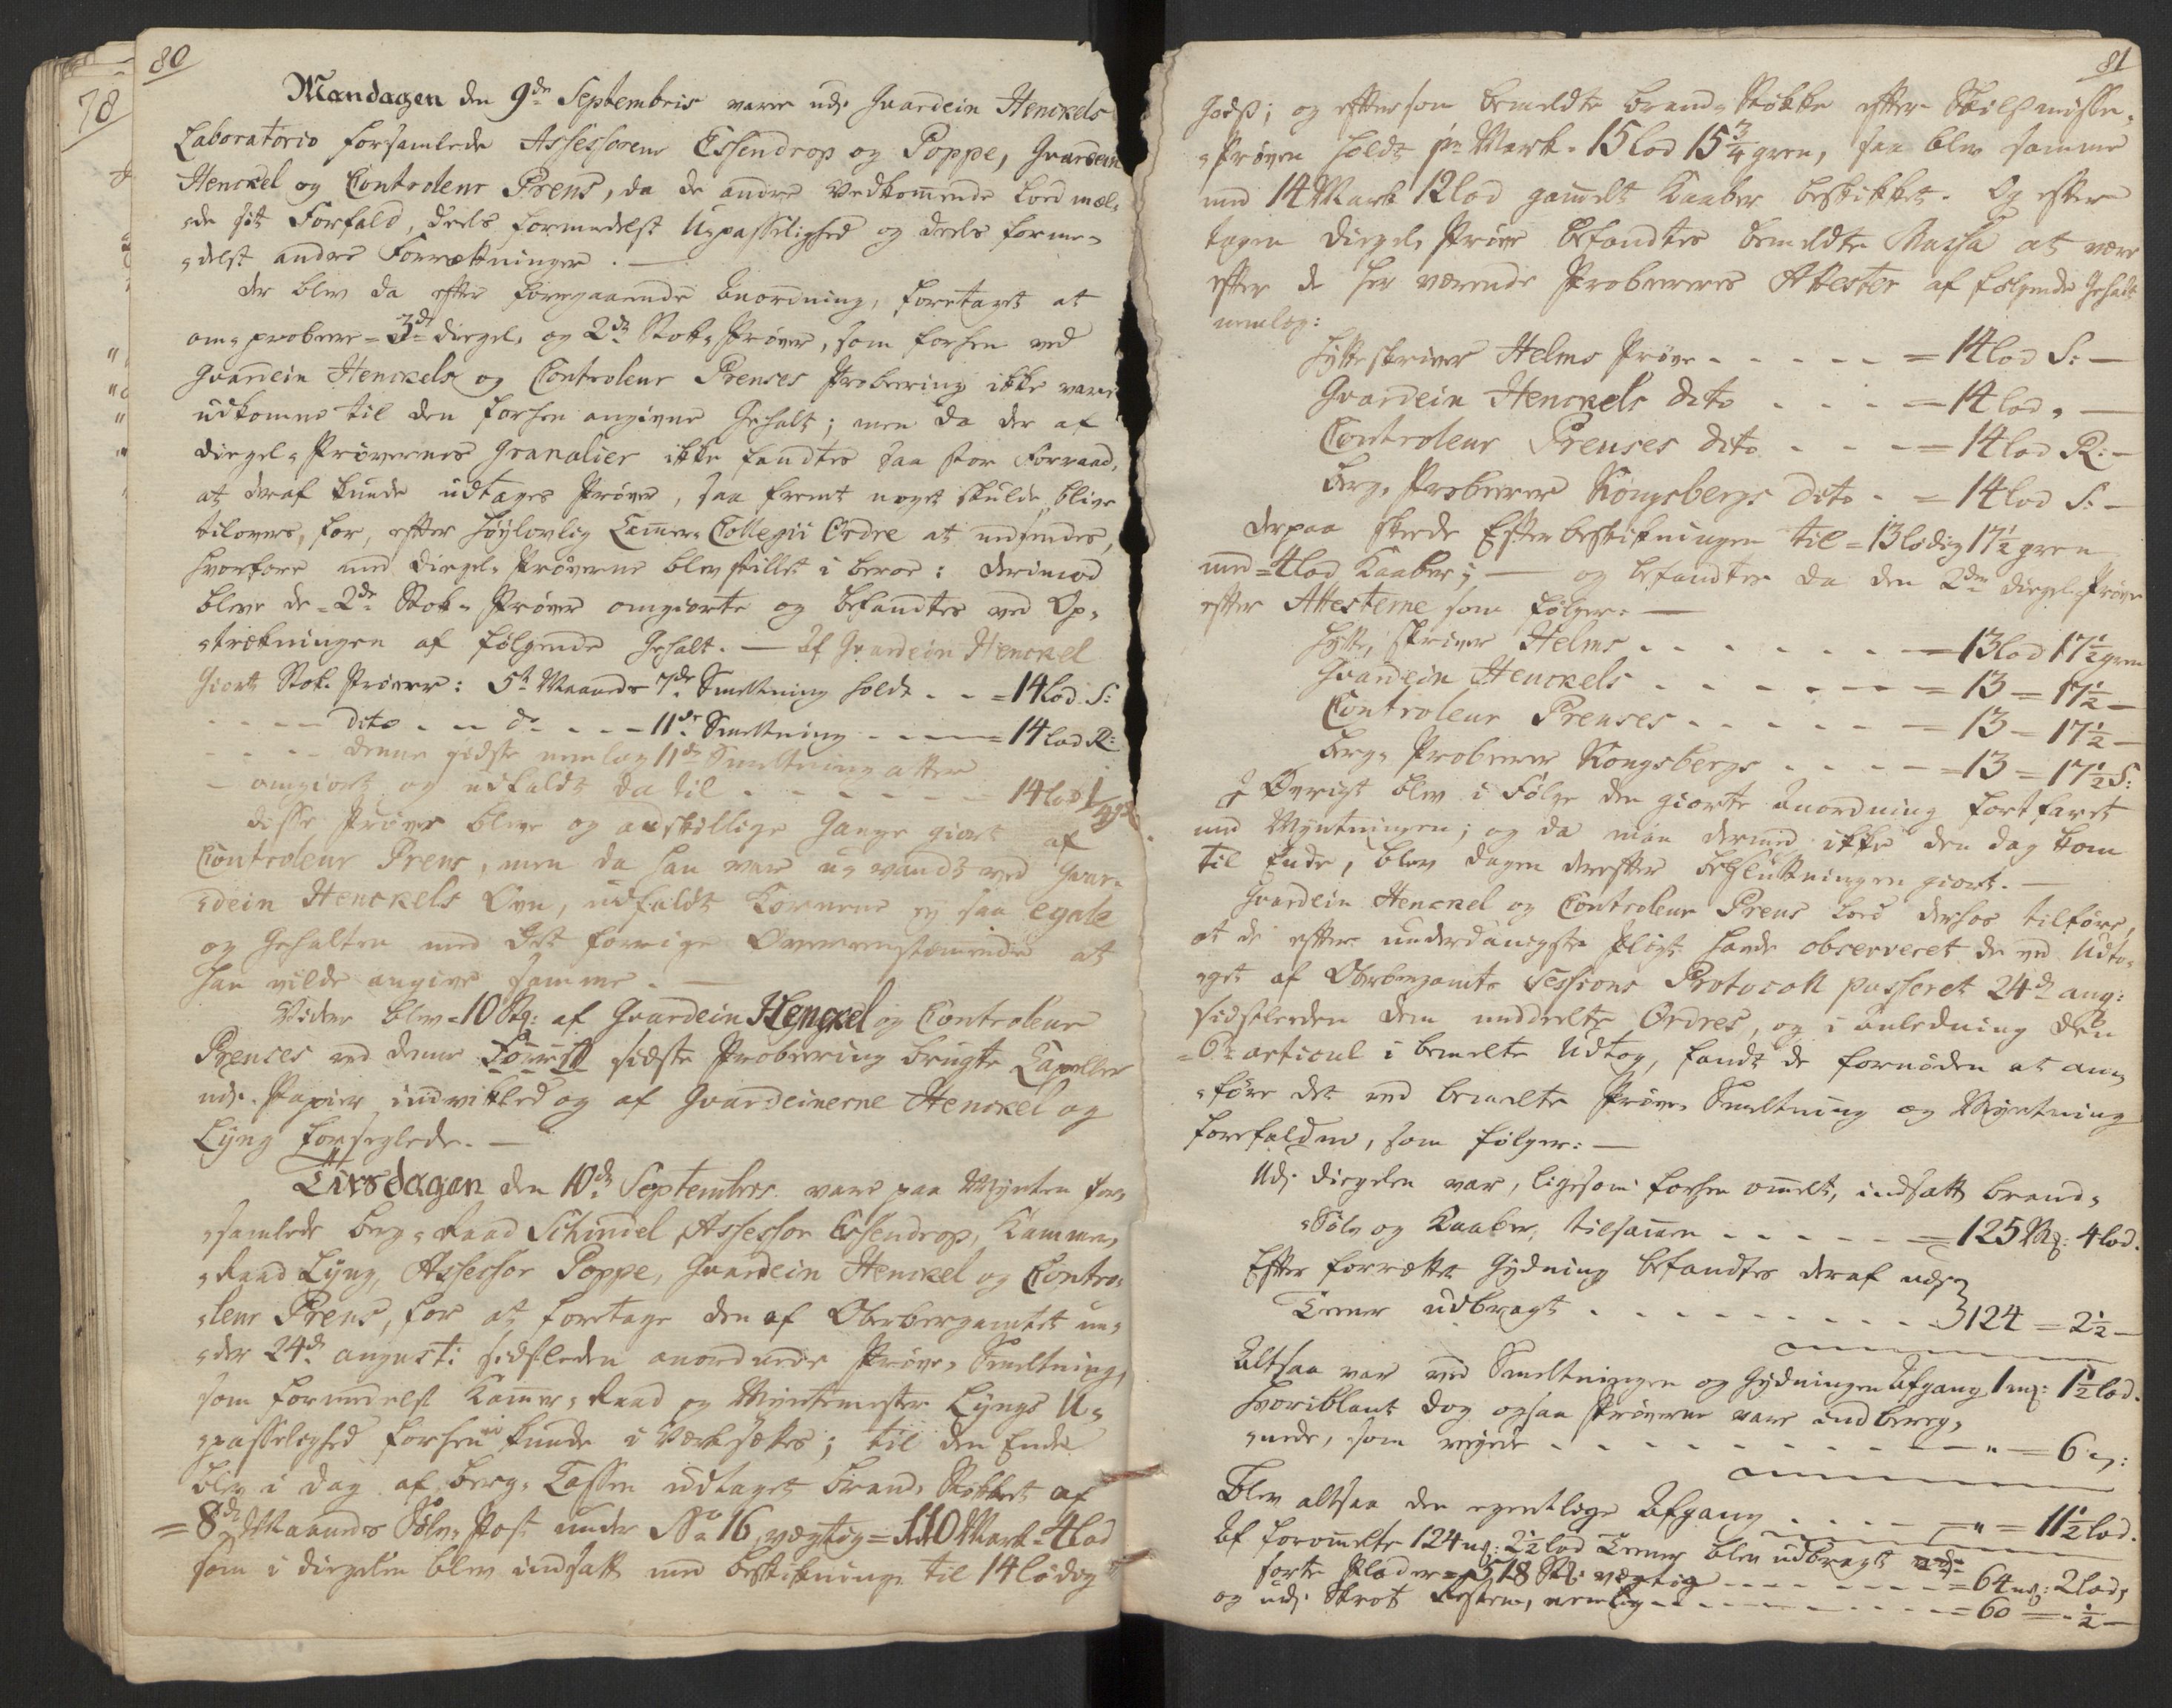 80
Mandagen den 9de Septembris vare udj Guardein Henckels
Laboratorio forsamlede Assessorerne Essendrop og Poppe, Guardein
Henckel og Controleur Prens, da de andre Vedkom̄ende lod mel-
-de sit Forfald, deels formedelst U-passelighed og deels forme-
-delst andre Forrættninger. —
Der blev da efter foregaaende Anordning, foretaget at
om-probere = 3de diegel- og 2de Stok-Prøver, som forhen ved
Guardein Henckels og Controleur Prenses Probering ikke vare
udkomne til den forhen angivne Gehalt; men da der af
Diegel-Prøvernes Granalier ikke fandtes saa stor Forraad,
at deraf kunde udtages Prøver, saa fremt noget skulde blive
tilovers, for, efter høylovlig Cam̄er-Collegii Ordre at nedsendes,
hvorfore med Diegel-Prøverne blev stillet i beroe: derimod
bleve de = 2de Stok-Prøver omgiorte og befandtes ved Op-
-trækningen af følgende Gehalt. — Af Guardein Henckel
Giort Stok-Prøver: 5te Maaneds 7de Smeltning holdt . . = 14 lod S:
- - - - dito . . . do . . . . 11te Smeltning . . . . = 14 lod R:
- - - - denne sidste nemlig 11te Smeltning atter
- omgiort og udfaldt da til . . . . . . . 14 lod
disse Prøver bleve og adskillige Gange giort af
Controleur Prens, men da han var u-vandt ved Guar-
-dein Henckels Ovn, udfaldt Kornene ey saa egale
og Gehalten med det forrige Overeensstem̄ende at
han vilde angive samme. —
Vider blev = 10 Stk: af Guardein Henckel og Controleur
Prenses ved denne sidste Probering brugte Capeller
udj Papiir indviklet og af Guardeinerne Henckel og
Lyng forseglede. —
Tirsdagen den 10de Septembris vare paa Mynten for-
-samlede Berg-Raad Schindel, Assessor Essendrop, Kammer-
-Raad Lyng, Assessor Poppe, Guardein Henckel og Contro-
-leur Prens, for at foretage den af Oberbergamtet un-
-der 24de augusti sidstleden anordnede Prøve-Smeltning,
som formedelst Kam̄er-Raad og Myntmester Lyngs U-
-passelighed forhen ei kunde i Værksættes; til den Ende
blev i dag af Berg-Cassen udtaget brand-Stykket af
= 8de Maaneds Sølv-Post under No 16, vægtig = 110 Mark 4 lod
som i diegelen blev indsatt med bestikning til 14 lødig
81
Gods; og efftersom bemeldte brand-Stykke efter Skilsmisse-
-Prøven holdt pr Mark = 15 lod 15¾ gren, saa blev samme
med 14 Mark 12 lod gam̄elt Kaaber bestikket. Og efter
tagen Diegel-Prøve befandtes bemeldte Massa at være
efter de her værende Probereres Attester af følgende Gehalt
nemlig:
Hytteskriver Helms Prøve . . . . . = 14 lod S: —
Guardein Henckels dito . . . . = 14 lod „ —
Controleur Prenses dito . . . . = 14 lod R: —
Berg-Proberer Kongsbergs dito . . = 14 lod S: —
Derpaa skeede Efterbestikningen til = 13 lødig 17½ gren
med = 4 lod Kaaber; — og befandtes da den 2den diegel-Prøve
efter Attesterne som følger: —
Hytte-skriver Helms . . . . . . . = 13 lod 17½ gren
Guardein Henckels . . . . . . . = 13 = 17½ —
Controleur Prenses . . . . . . = 13 = 17½ —
Berg-Proberer Kongsbergs . . . . = 13 = 17½ S:
I Øvrigt blev i Følge den giorte Anordning fortfaret
med Myntningen; og da man dermed ikke den dag kom
til Ende, blev dagen derefter beslutningen giort. —
Guardein Henckel og Controleur Prens lod derhos tilføre,
at de efter underdanigste Pligt havde observeret de ved Udto-
-get af Oberbergamts Sessions Protocoll passeret 24de aug:
sidstleeden dem meddeelte Ordres, og i anledning den
= 6te articul i bemelte Udtog, fandt de fornøden at an-
-føre det ved bemelte Prøve-Smeltning og Myntning
forefaldne, som følger: —
Udj diegelen var, ligesom forhen om̄elt, indsatt brand-
-Sølv og Kaaber, tilsam̄en . . . . . . = 125 Mk: 4 lod.
Efter forrettet Gydning befandtes deraf udj
Teener udbragt . . . . . . . . . . . } 124 = 2½ —
Altsaa var ved Smeltningen og Gydningen Afgang 1 mk: 1½ lod.
Hvoriblant dog ogsaa Prøverne vare indbereg-
-nede, som veyede . . . . . . . . . . . . — „ = 6 „:
Blev altsaa den egentlige Afgang . . . . = „ = 11½ lod.
Af forom̄elte 124 mk: 2½ lod Teener blev udbragt udj
sorte Plader = 1518 Stk: vægtig . . . . . . . . = 64 mk: 2 lod,
og udj Skrot Resterne, nemlig . . . . . . . . . = 60 = „ ½ —
78